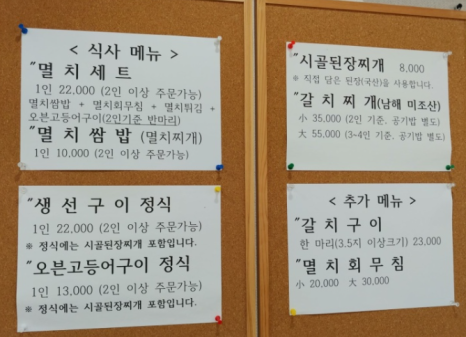 < 식사 메뉴 >
"멸치세트
1인 22,000 (2인 이상 주문가능)
멸치쌈밥 + 멸치회무침 + 멸치튀김 +
오븐고등어구이(2인기준 반마리)
"멸치쌈밥 (멸치찌개)
1인 10,000 (2인 이상 주문가능)
"생선구이 정식
1인 22,000 (2인 이상 주문가능)
※ 정식에는 시골된장찌개 포함입니다.
"오븐고등어구이 정식
1인 13,000 (2인 이상 주문가능)
※ 정식에는 시골된장찌개 포함입니다.
"시골된장찌개 8,000
※ 직접 담은 된장(국산)을 사용합니다.
"갈치찌개(남해 미조산)
小 35,000 (2인 기준, 공기밥 별도)
大 55,000 (3~4인 기준, 공기밥 별도)
< 추가 메뉴 >
"갈치구이
한 마리(3.5지 이상크기) 23,000
"멸치회무침
小 20,000 大 30,000